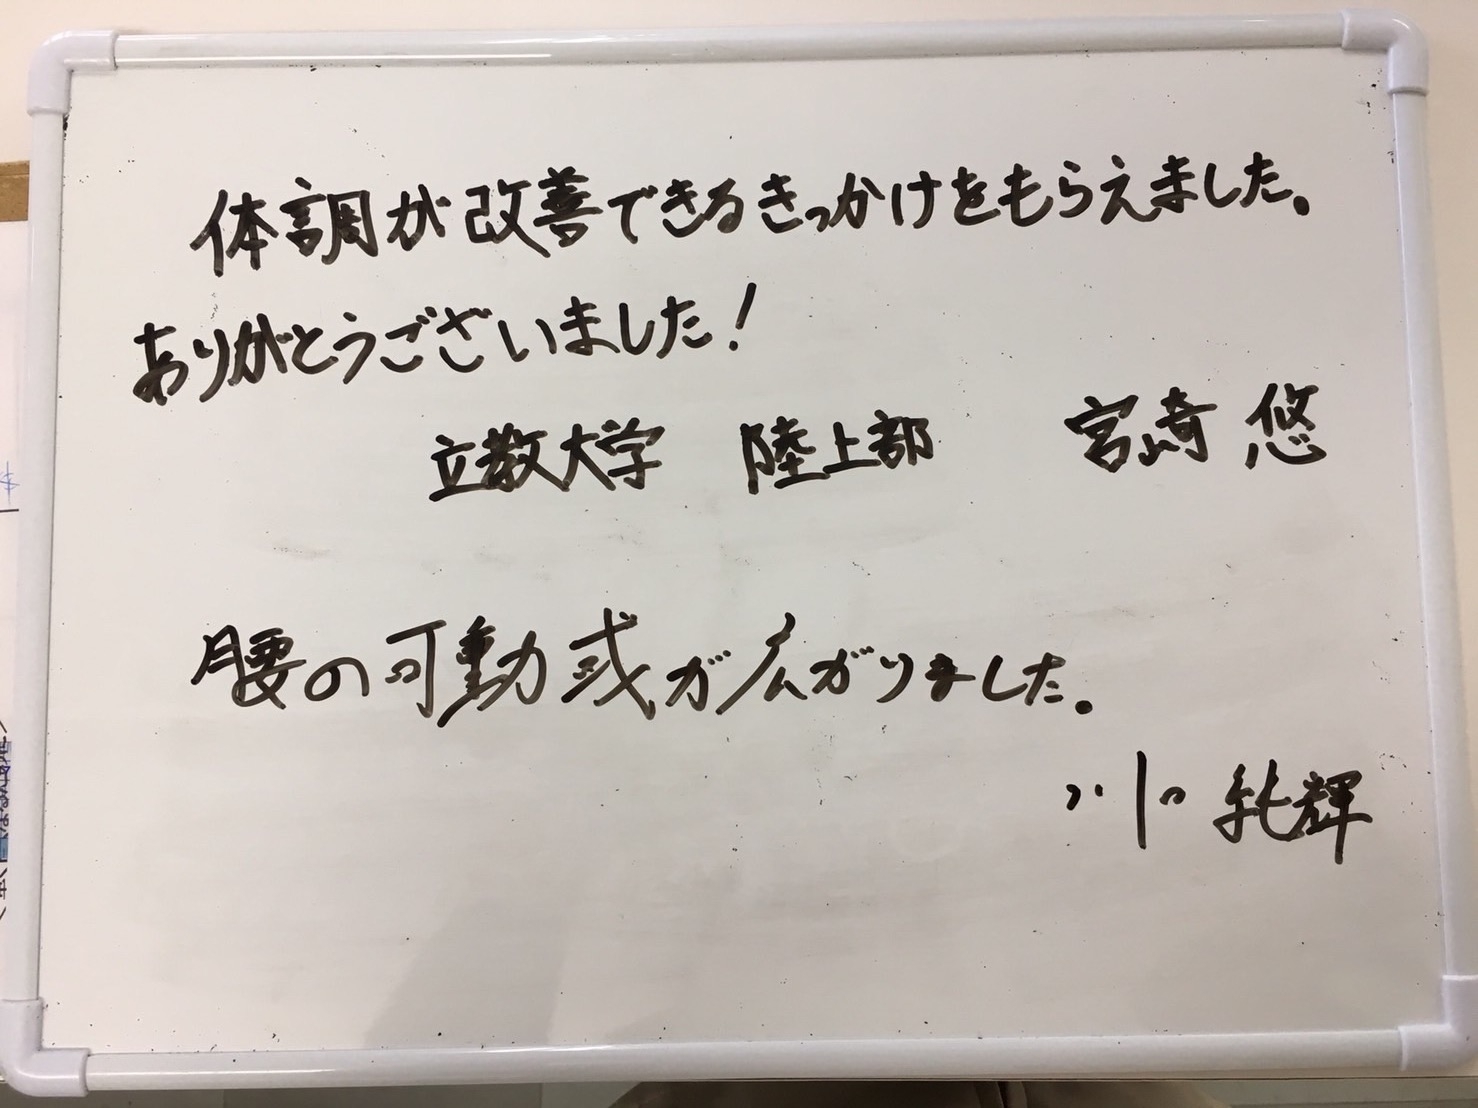 体調が改善できるきっかけをもらえました。
ありがとうございました！
立教大学 陸上部 宮崎 悠
腰の可動域が広がりました。
輝